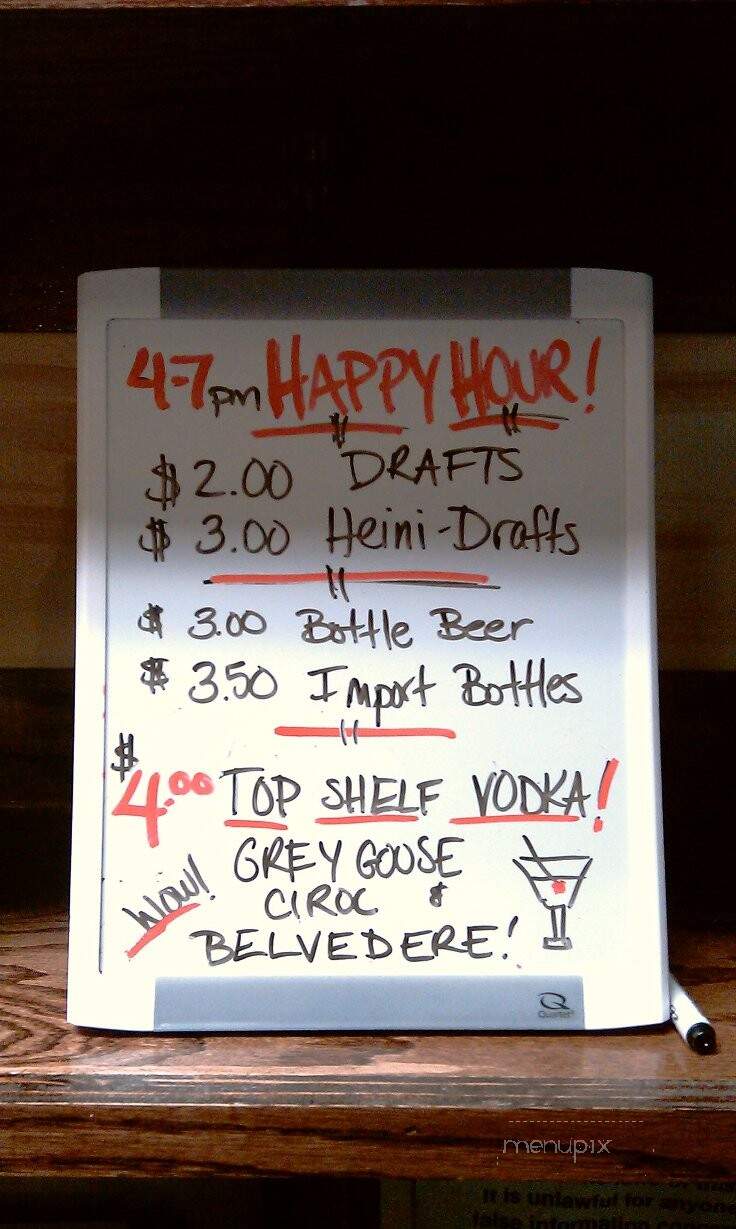 4-7pm HAPPY HOUR!
$2.00 DRAFTS
$3.00 Heini-Drafts
$3.00 Bottle Beer
$3.50 Import Bottles
$4.00 TOP SHELF VODKA!
GREY GOOSE
Wow! CIROC &
BELVEDERE!
Q
Quartet
menupix
It is unlawful for anyone
false information